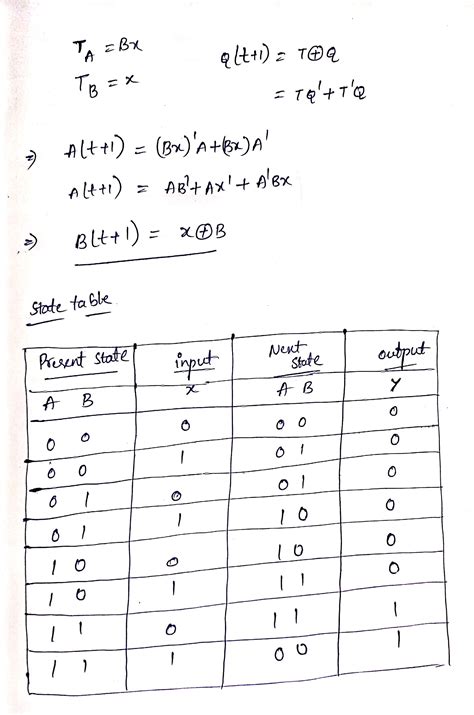 T_A = Bx
Q(t+1) = T⊕Q
T_B = x
= TQ' + T'Q
⇒ A(t+1) = (Bx)'A + (Bx)A'
A(t+1) = AB' + Ax' + A'Bx
⇒ B(t+1) = x⊕B
State table
Present State | input | Next State | output
A B | x | A B | Y
0 0 | 0 | 0 0 | 0
0 0 | 1 | 0 1 | 0
0 1 | 0 | 0 1 | 0
0 1 | 1 | 1 0 | 0
1 0 | 0 | 1 0 | 0
1 0 | 1 | 1 1 | 0
1 1 | 0 | 1 1 | 1
1 1 | 1 | 0 0 | 1